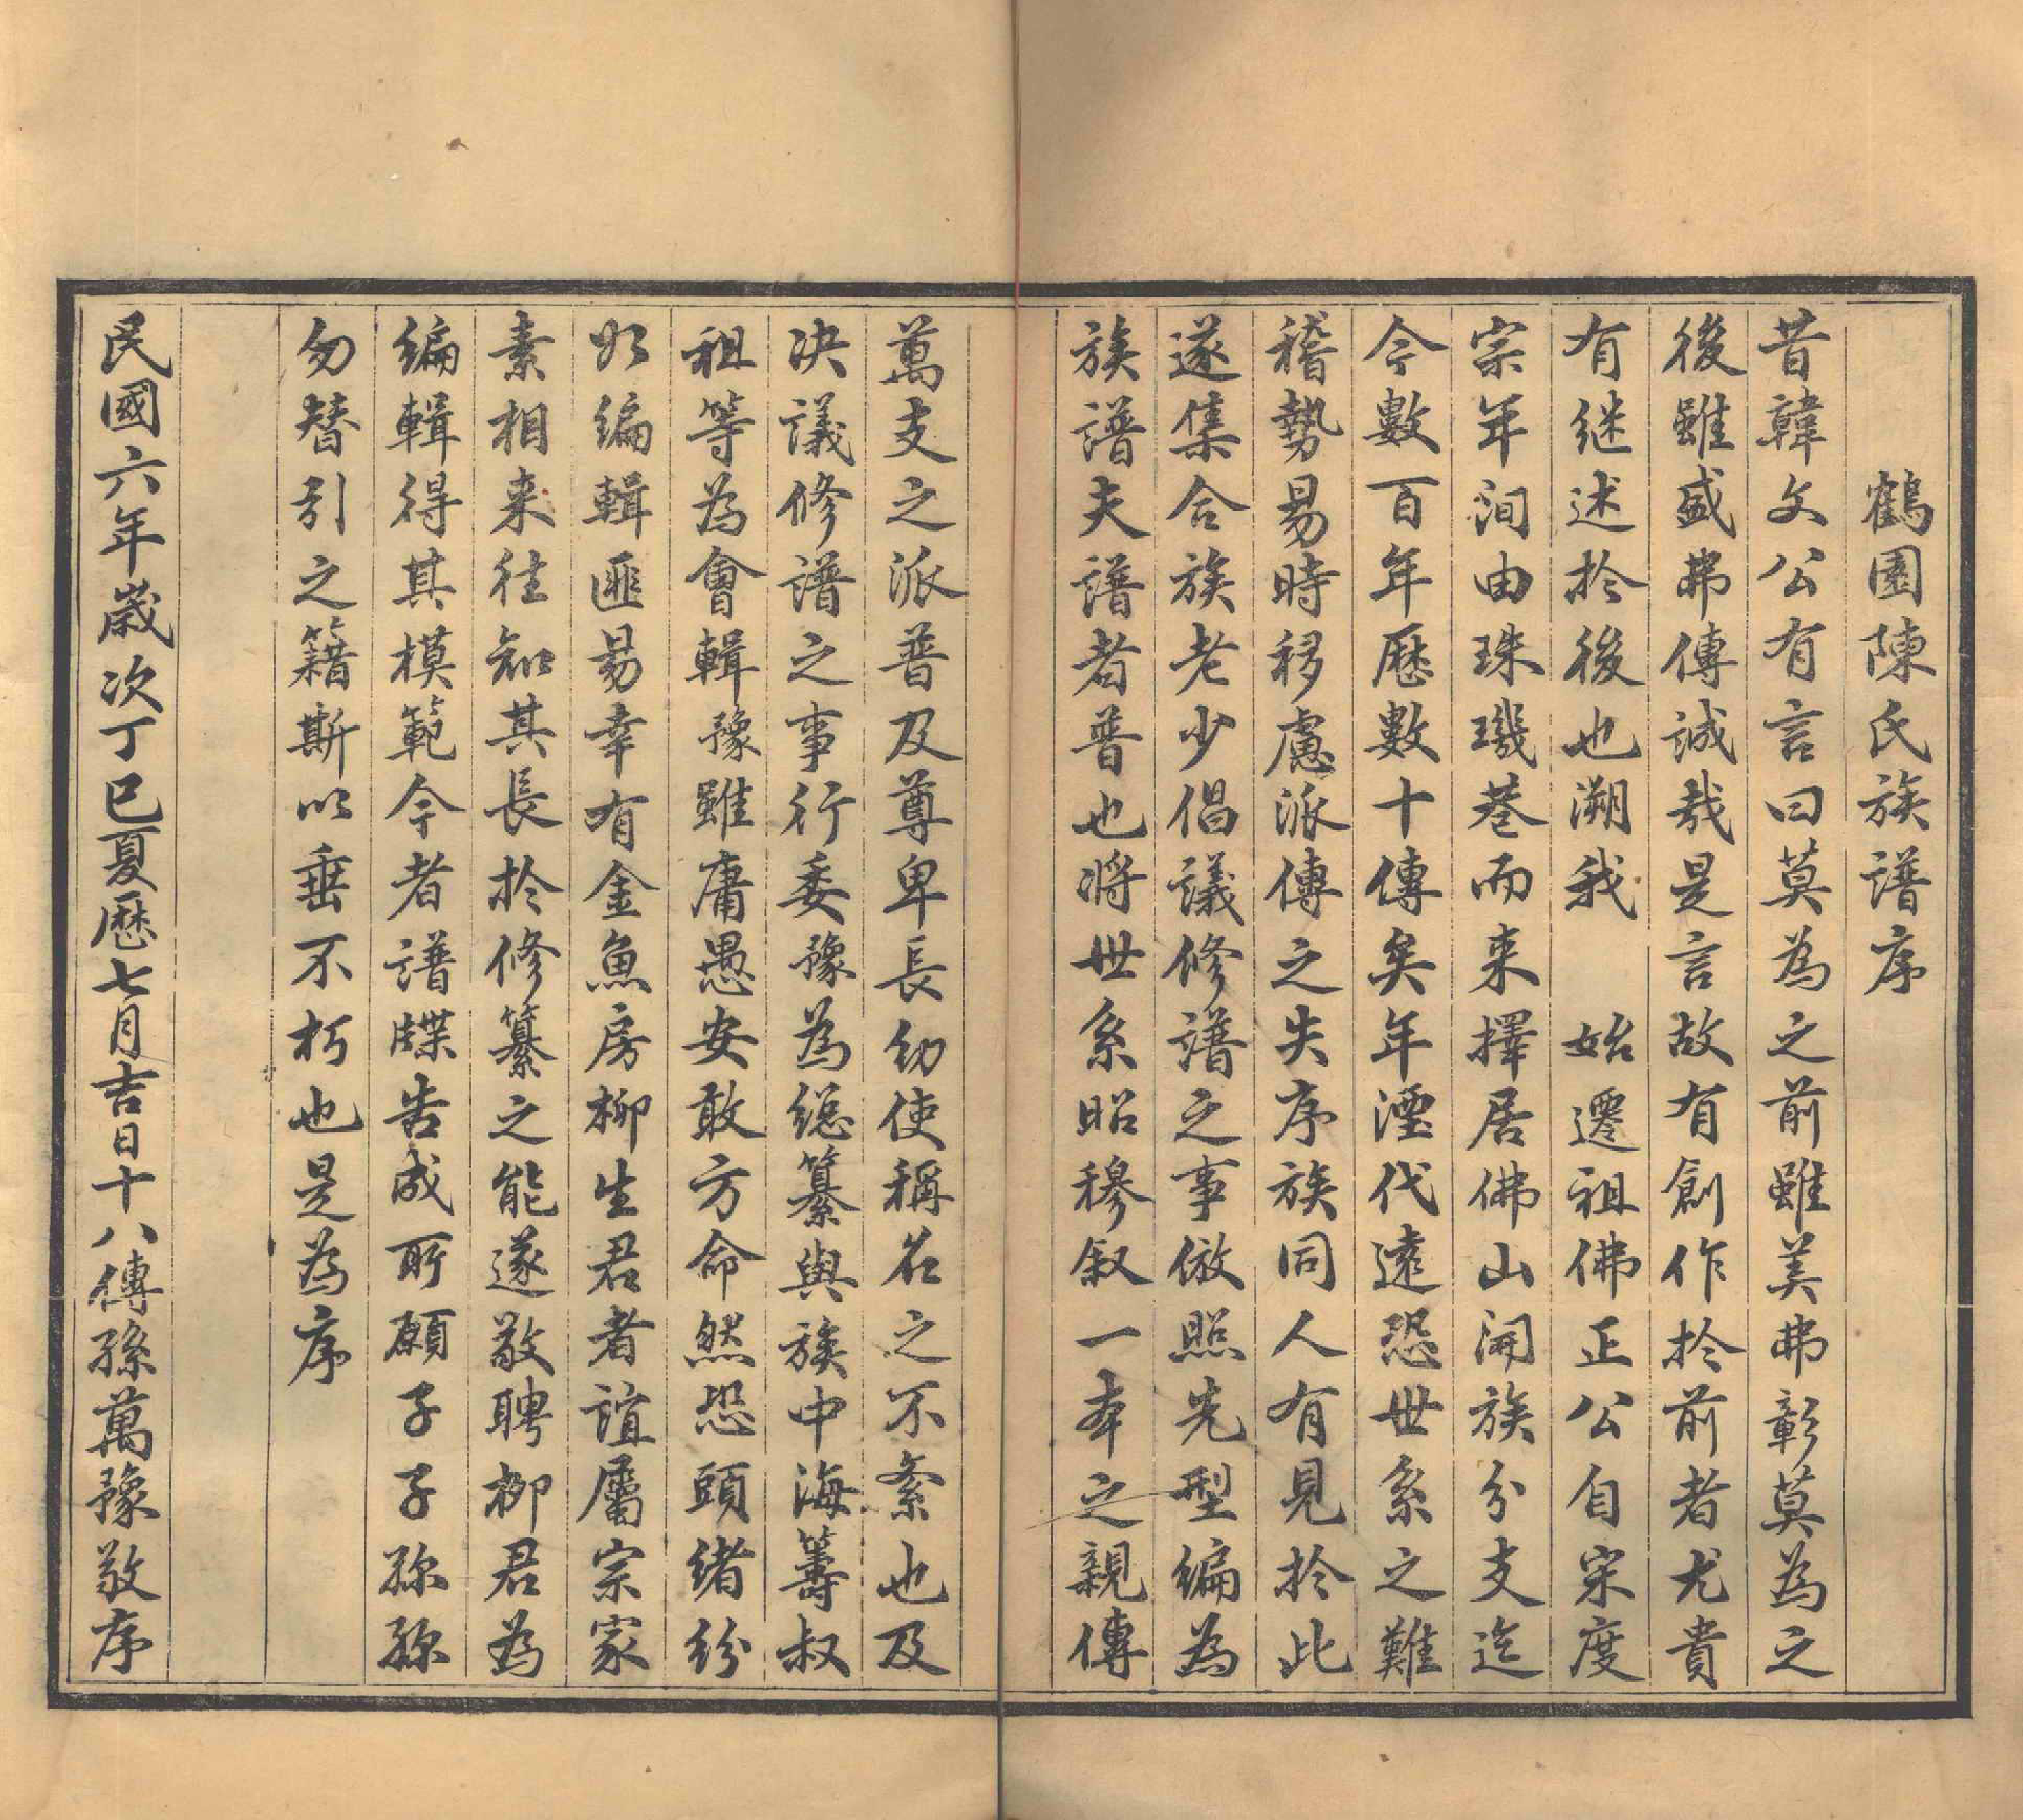 鶴園陳氏族譜序
昔韓文公有言曰莫為之前雖美弗彰莫為之
後雖盛弗傳誠哉是言故有創作於前者尤貴
有継述於後也溯我　始遷祖佛正公自宋度
宗年间由珠璣巷而来擇居佛山開族分支迄
今數百年歷數十傳矣年湮代遠恐世系之難
稽勢易時移慮派傳之失序族同人有見於此
遂集合族老少倡議修譜之事倣照先型編為
族譜夫譜者普也將世系昭穆叙一本之親傳
萬支之派普及尊卑長幼使稱名之不紊也及
决議修譜之事行委豫為總纂與族中海籌叔
祖等為會輯豫雖庸愚安敢方命然恐頭緒紛
如編輯匪易幸有金魚房柳生君者誼屬宗家
素相来往知其長於修纂之能遂敬聘柳君為
編輯得其模範今者譜牒告成所願子子孫孫
勿替引之籍斯以垂不朽也是為序
民國六年歲次丁巳夏歷七月吉日十八傳孫萬豫敬序